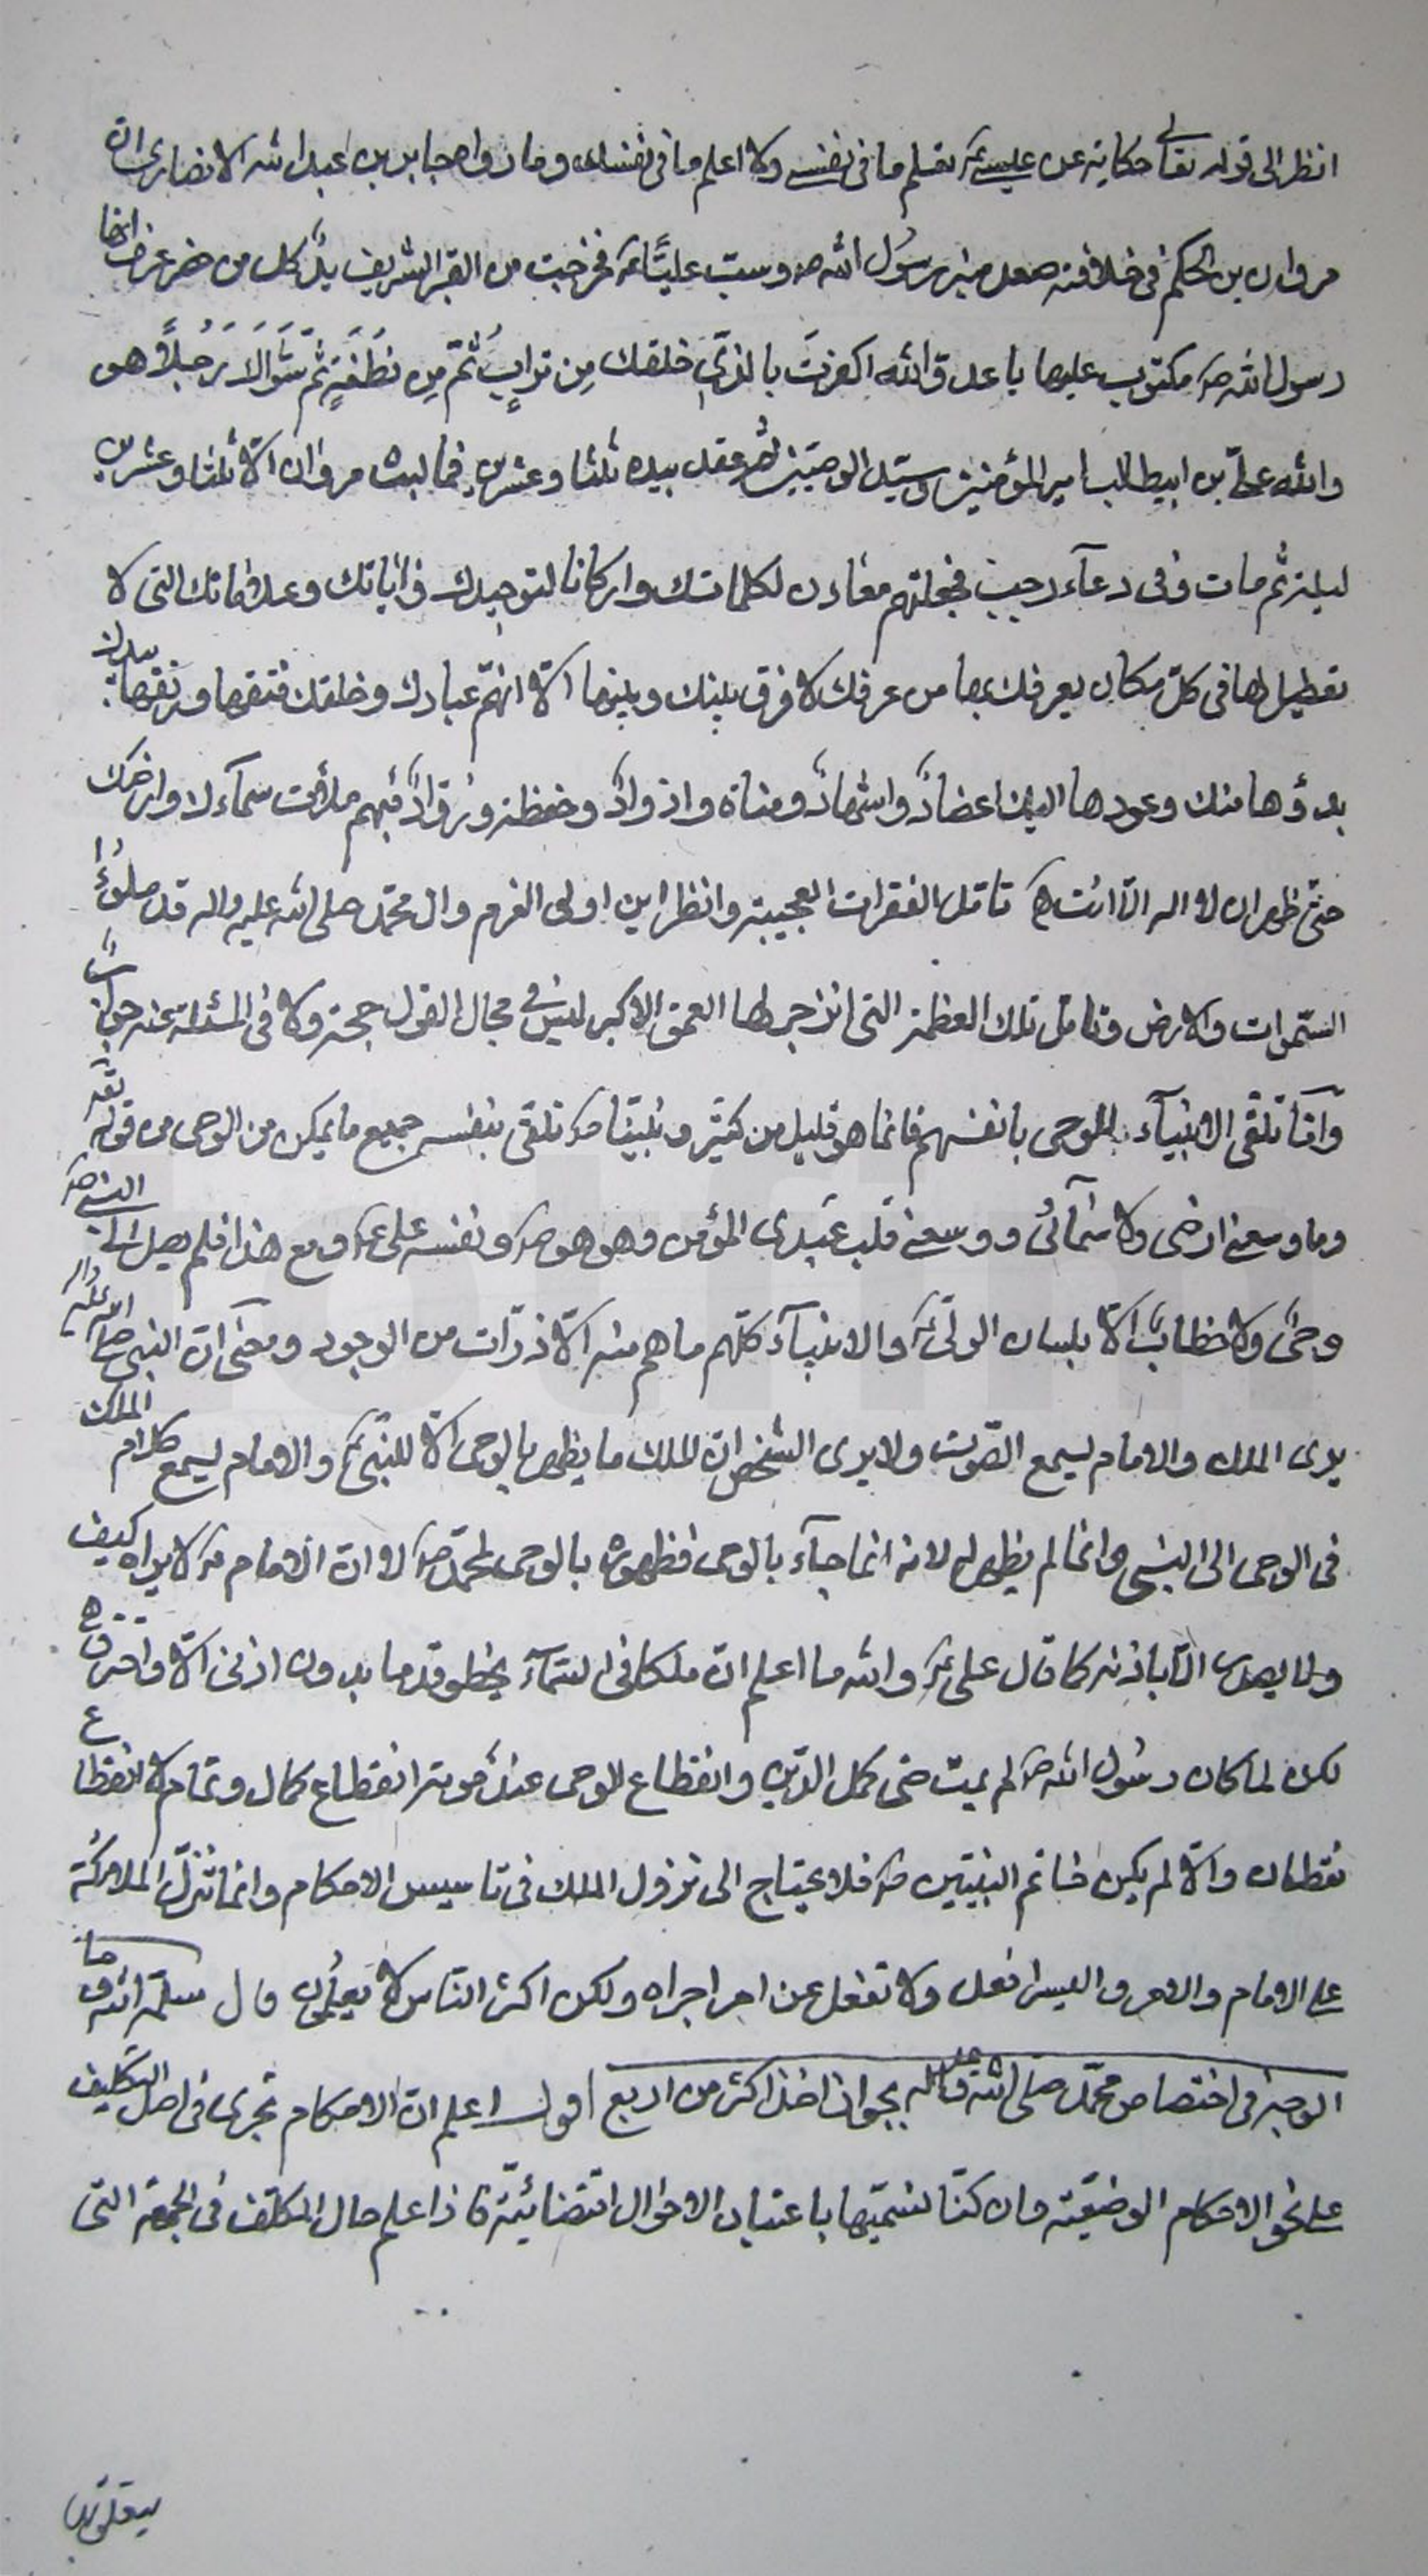 انظر الى قوله تعالى حكاية عن عيسى ع تعلم ما فى نفسى ولا اعلم ما فى نفسك وما رواه جابر بن عبد الله الانصارى ان
مروان بن الحكم فى خلافته صعد منبر رسول الله ص وسبّ عليّاً ع فخرجت من القبر الشريف يدٌ كل من حضر عرف انها
رسول الله ص مكتوب عليها يا عدوّ الله اكفرتَ بالذّى خلقك مِن ترابٍ ثُمّ مِن نُطفَةٍ ثُمّ سَوّاكَ رَجُلاً هو
والله علىّ بن ابيطالب امير المؤمنين وسيّد الوصيّين ثم عقد بيده ثلثا وعشرين فما لبث مروان الّا ثلثا وعشرين
ليلة ثم مات وفى دعآء رجب فجعلتهم معادن لكلماتك واركانا لتوحيدك واٰياتك وعلاماتك التى لا
تعطيل لها فى كلّ مكان يعرفك بها من عرفك لا فرق بينك وبينها الّا انهّم عبادك وخلقك فتقها ورتقها بيدك
بدؤها منك وعودها اليك اعضادٌ واشهادٌ ومناة واذوادٌ وحفظة وروّادٌ فبهم ملأت سمآءك وارضك
حتّى ظهر ان لا اله الّا انت تامّل الفقرات العجيبة وانظر اين اولى العزم وال محمّد صلى الله عليه واله قد ملؤا
السّموات والارض وتامّل تلك العظمة التى انزجر لها العمق الاكبر ليس فى مجال القول حجة ولا فى المسئلة عنه جوابٌ
وامّا تلقى الانبيآء للوحى بانفسهم فانما هو قليل من كثير ونبيّنا ص تلقى بنفسه جميع ما يمكن من الوحى من قوله تعه
وما وسعنى ارضى ولا سمآئى ووسعنى قلب عبدى المؤمن وهو هو ص ونفسه على ع ومع هذا فلم يصل الى النبى ص
وحىٌ ولا خطابٌ الّا بلسان الولىّ ع والانبيآء كلّهم ما هم منه الّا ذرّات من الوجود ومعنى ان النبى صلى الله عليه واله
يرى الملك والامام يسمع الصّوت ولا يرى الشخص ان الملك ما يظهر بالوحى الّا للنّبى ع والامام يسمع كلام الملك
فى الوحى الى النبى وانما لم يظهر له لانه انما جآء بالوحى فظهوره بالوحى لمحمّد ص لا ان الامام ع لا يراه كيف
ولا يصدر الّا باذنه كما قال على ع والله ما اعلم ان ملكا فى السّمآء يخطو قدما بدون اذنى الّا واحترق
لكن لما كان رسول الله ص لم يمت حتى كمل الدّين وانقطاع الوحى عند موته انقطاع كمال وتمام لا انقطاع
نقصان والّا لم يكن خاتم النبيّين ص فلا يحتاج الى نزول الملك فى تاسيس الاحكام وانما تنزّل الملائكة
على الامام والامر والعيسر افعل ولا تفعل عن امر اجراه ولكن اكثر النّاس لا يعلمون قال سلمه الله ما
الوجه فى اختصاص محمّد صلى الله عليه واله بجواز اخذ اكثر من اربع اقول اعلم ان الاحكام تجرى فى اصل التكليف
على نحو الاحكام الوضعيّة وان كنّا نسمّيها باعتبار الاحوال اقتضائيّة فاذا علم حال المكلّف فى الجهة التى